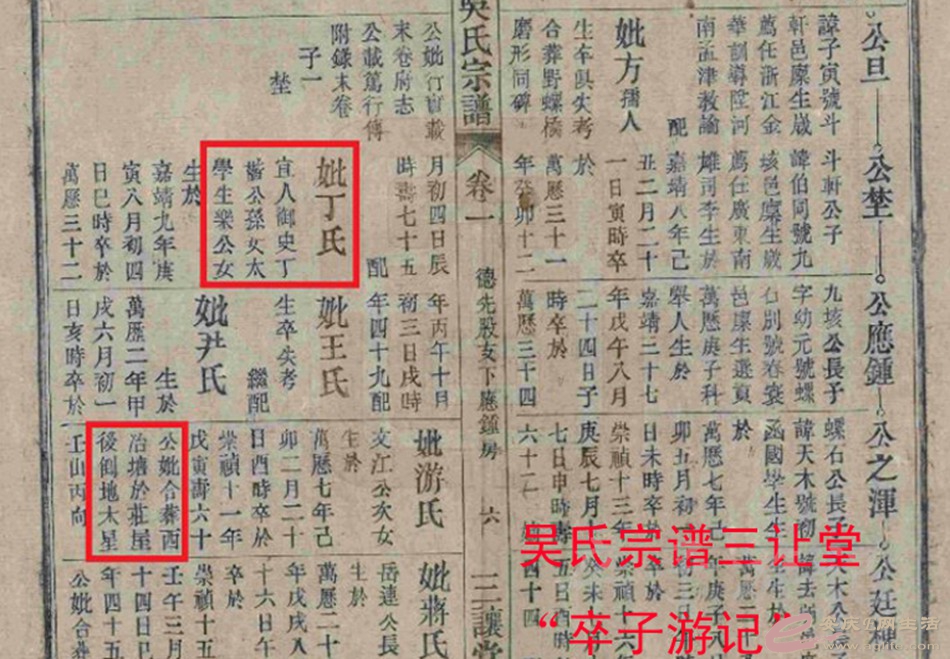 公旦
公埜
公應鍾
公之渾
公廷
諱子寅號斗
軒邑廩生歲
薦任浙江金
華訓導陞河
南孟津教諭
配
妣方孺人
生卒俱失考
合葬野螺橋
磨形同碑
斗軒公子
諱伯同號九
垓邑廩生歲
薦任廣東南
雄司李生於
嘉靖八年己
丑二月二十
一日寅時卒
於
萬曆三十一
年癸卯十二
九垓公長子
字幼元號螺
石別號春寰
邑廩生選貢
萬曆庚子科
舉人生於
嘉靖三十七
年戊午八月
二十四日子
時卒於
萬曆三十四
螺石公長子
諱天木號初
函國學生生
於
萬曆七年己
卯五月初
日未時卒於
崇禎十三年
庚辰七月十
七日申時壽
六十二
吳氏宗譜
卷一
德先股文下應鍾房
六
三讓堂
公妣行實載
末卷府志
公載篤行傳
附錄末卷
子一
埜
月初四日辰
時壽七十五
配
妣丁氏
宜人御史丁
楷公孫女太
學生樂公女
生於
嘉靖九年庚
寅八月初四
日巳時卒於
萬曆三十二
年丙午十月
初三日戌時
年四十九配
妣王氏
生卒失考
繼配
妣尹氏
生於
萬曆二年甲
戌六月初一
日亥時卒於
妣游氏
文江公次女
生於
萬曆七年己
卯二月二十
日酉時卒於
崇禎十一年
戊寅壽六十
公妣合葬西
冶塘於莊屋
後倒地木星
壬山丙向
妣蔣氏
岳連公長
生於
萬曆二十
年戊戌八
十六日午
卒於
崇禎十五
壬午三月
十四日巳
年四十五
公妣合葬
吴氏宗谱三让堂
“卒子游记